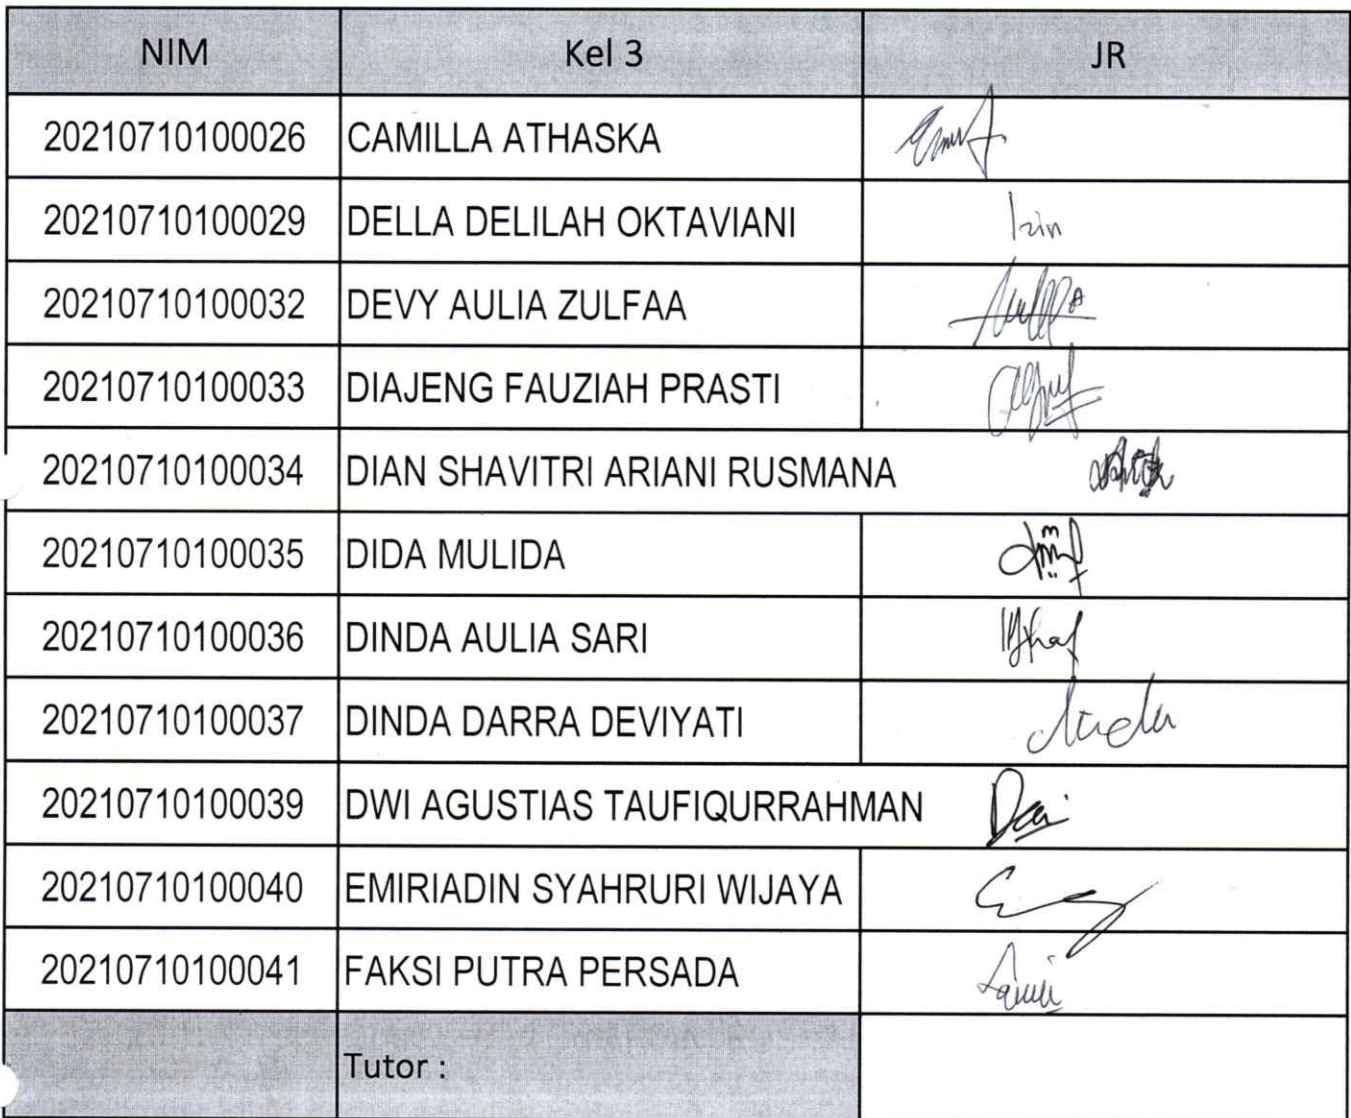 NIM Kel 3 JR
20210710100026 CAMILLA ATHASKA
20210710100029 DELLA DELILAH OKTAVIANI Izin
20210710100032 DEVY AULIA ZULFAA
20210710100033 DIAJENG FAUZIAH PRASTI
20210710100034 DIAN SHAVITRI ARIANI RUSMANA
20210710100035 DIDA MULIDA
20210710100036 DINDA AULIA SARI
20210710100037 DINDA DARRA DEVIYATI
20210710100039 DWI AGUSTIAS TAUFIQURRAHMAN
20210710100040 EMIRIADIN SYAHRURI WIJAYA
20210710100041 FAKSI PUTRA PERSADA
Tutor :